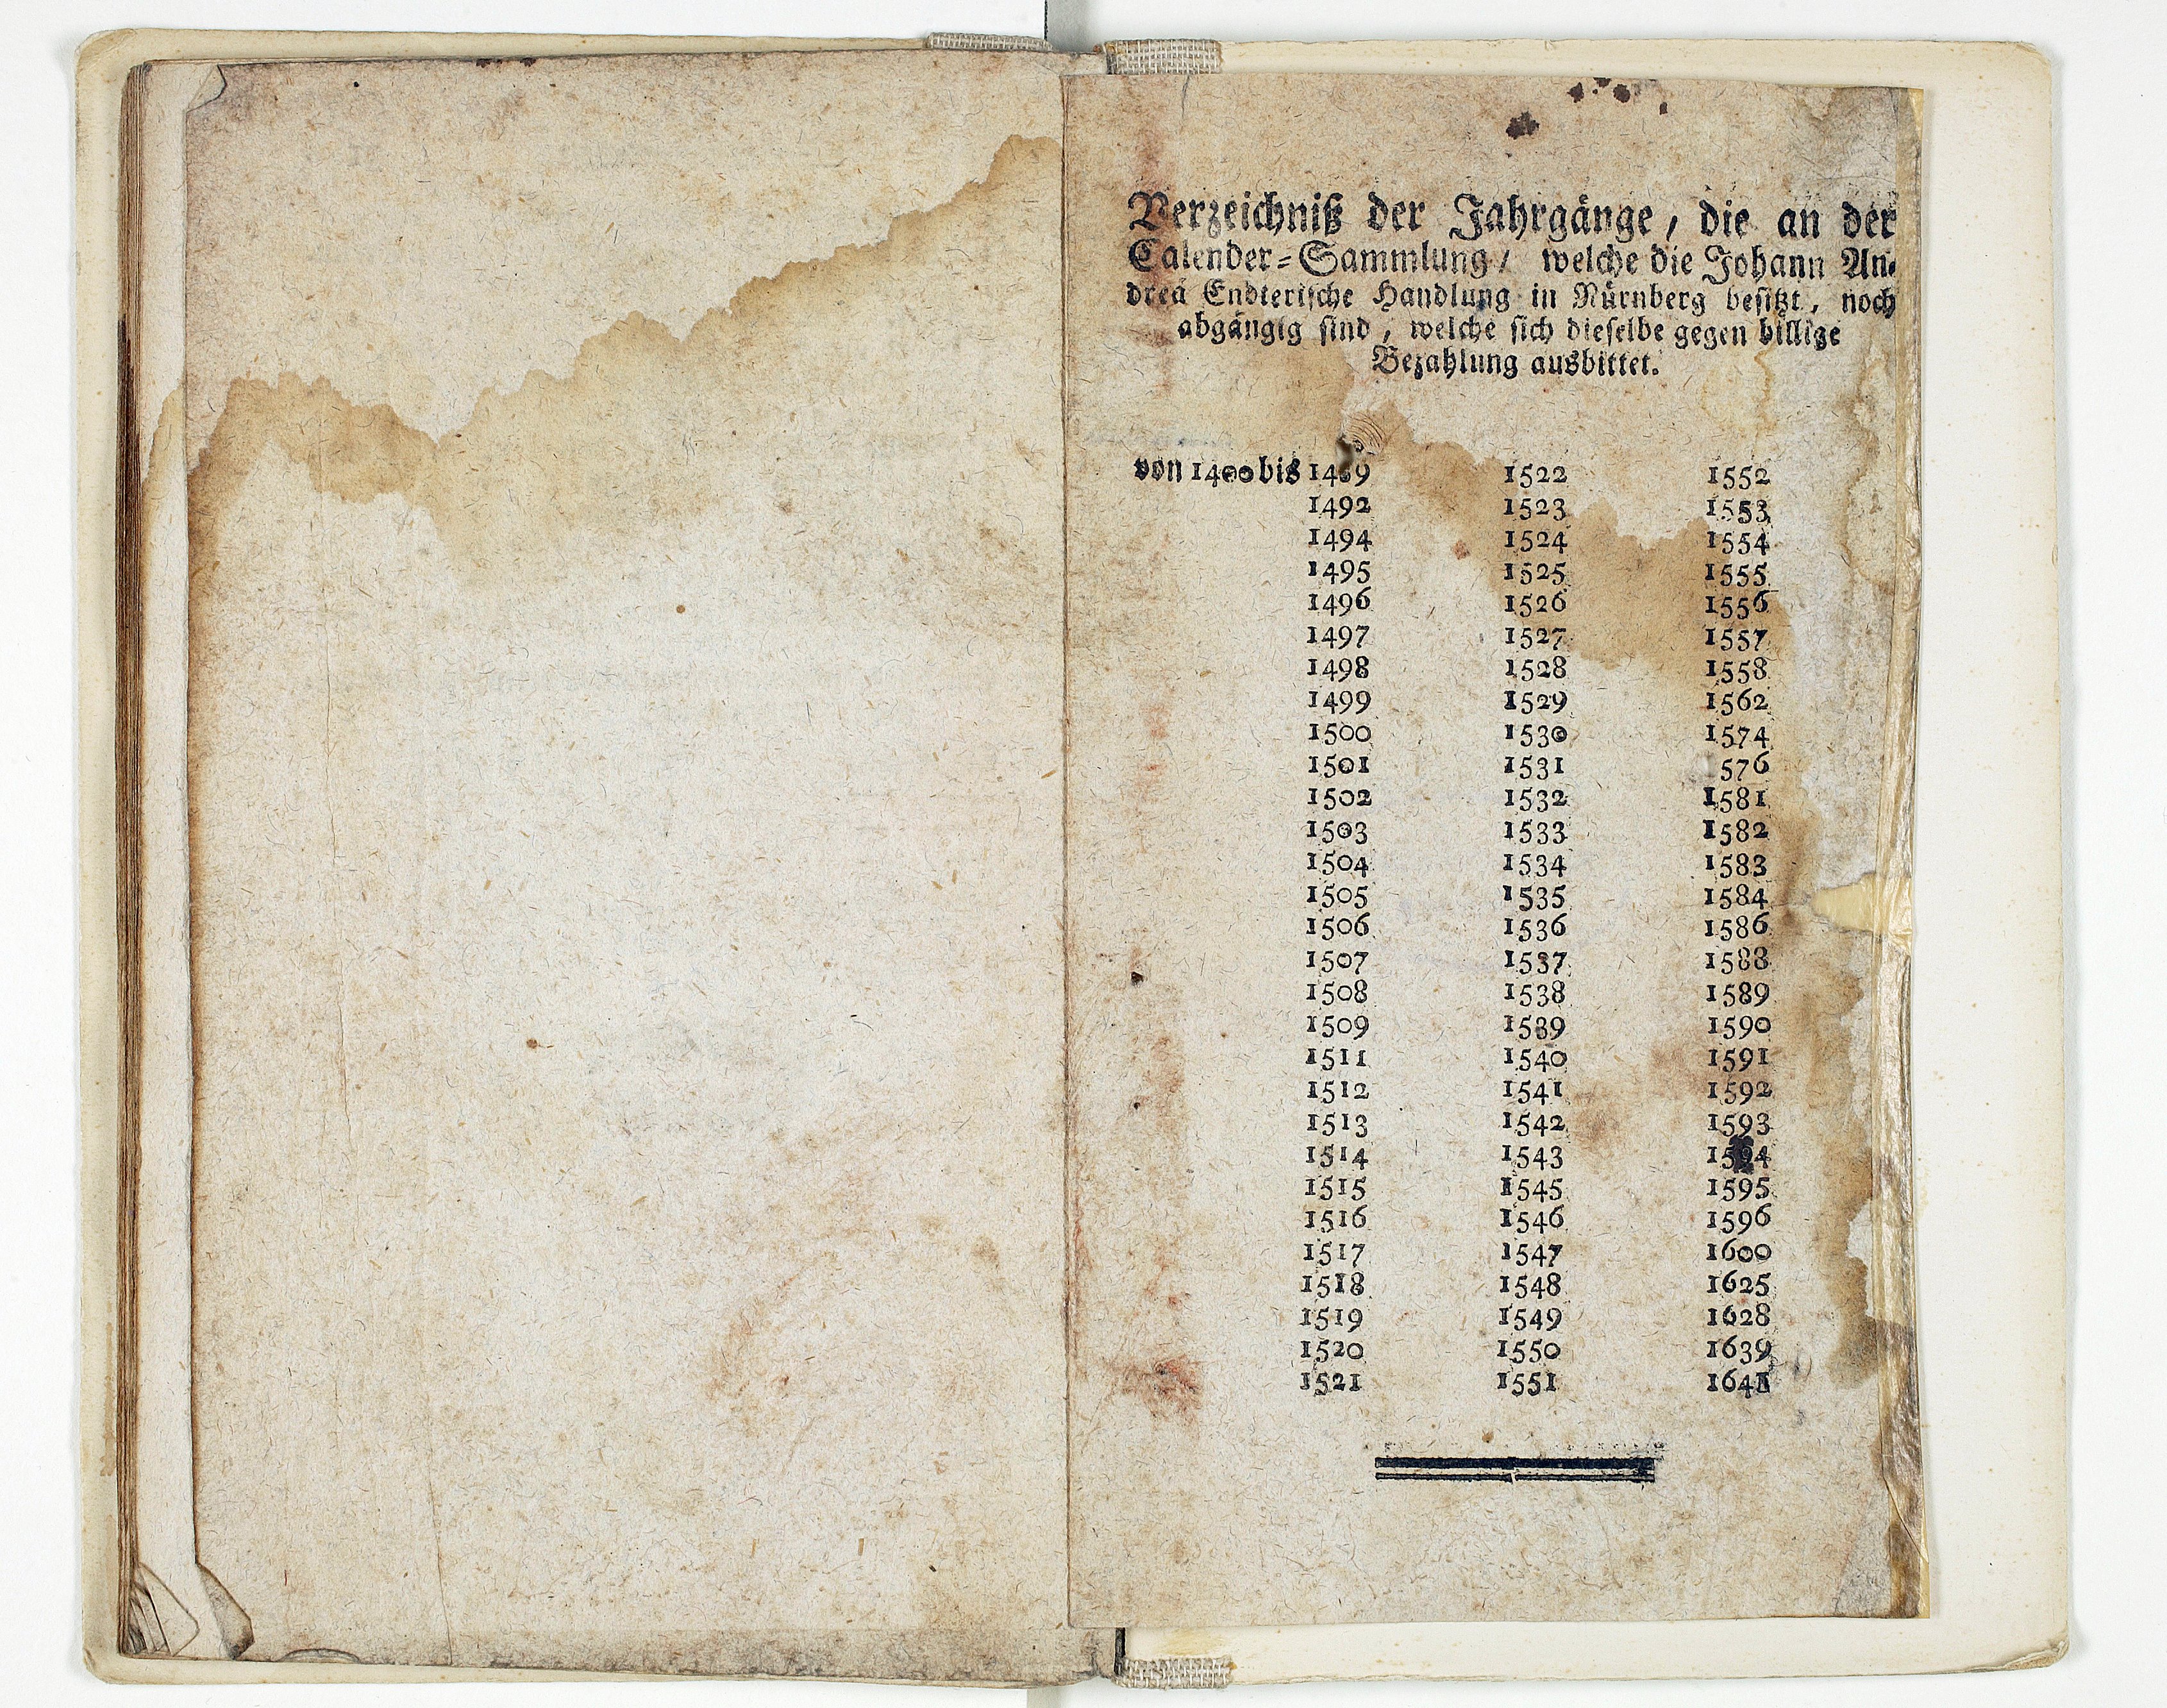 Verzeichniß der Jahrgänge, die an der
Calender-Sammlung, welche die Johann An-
dreä Endterische Handlung in Nürnberg besitzt, noch
abgängig sind, welche sich dieselbe gegen billige
Bezahlung ausbittet.
von 1400 bis
1492
1494
1495
1496
1497
1498
1499
1500
1501
1502
1503
1504
1505
1506
1507
1508
1509
1511
1512
1513
1514
1515
1516
1517
1518
1519
1520
1521
1522
1523
1524
1525
1526
1527
1528
1529
1530
1531
1532
1533
1534
1535
1536
1537
1538
1539
1540
1541
1542
1543
1545
1546
1547
1548
1549
1550
1551
1552
1553
1554
1555
1556
1557
1558
1562
1574
576
1581
1582
1583
1584
1586
1588
1589
1590
1591
1592
1593
1594
1595
1596
1600
1625
1628
1639
1641